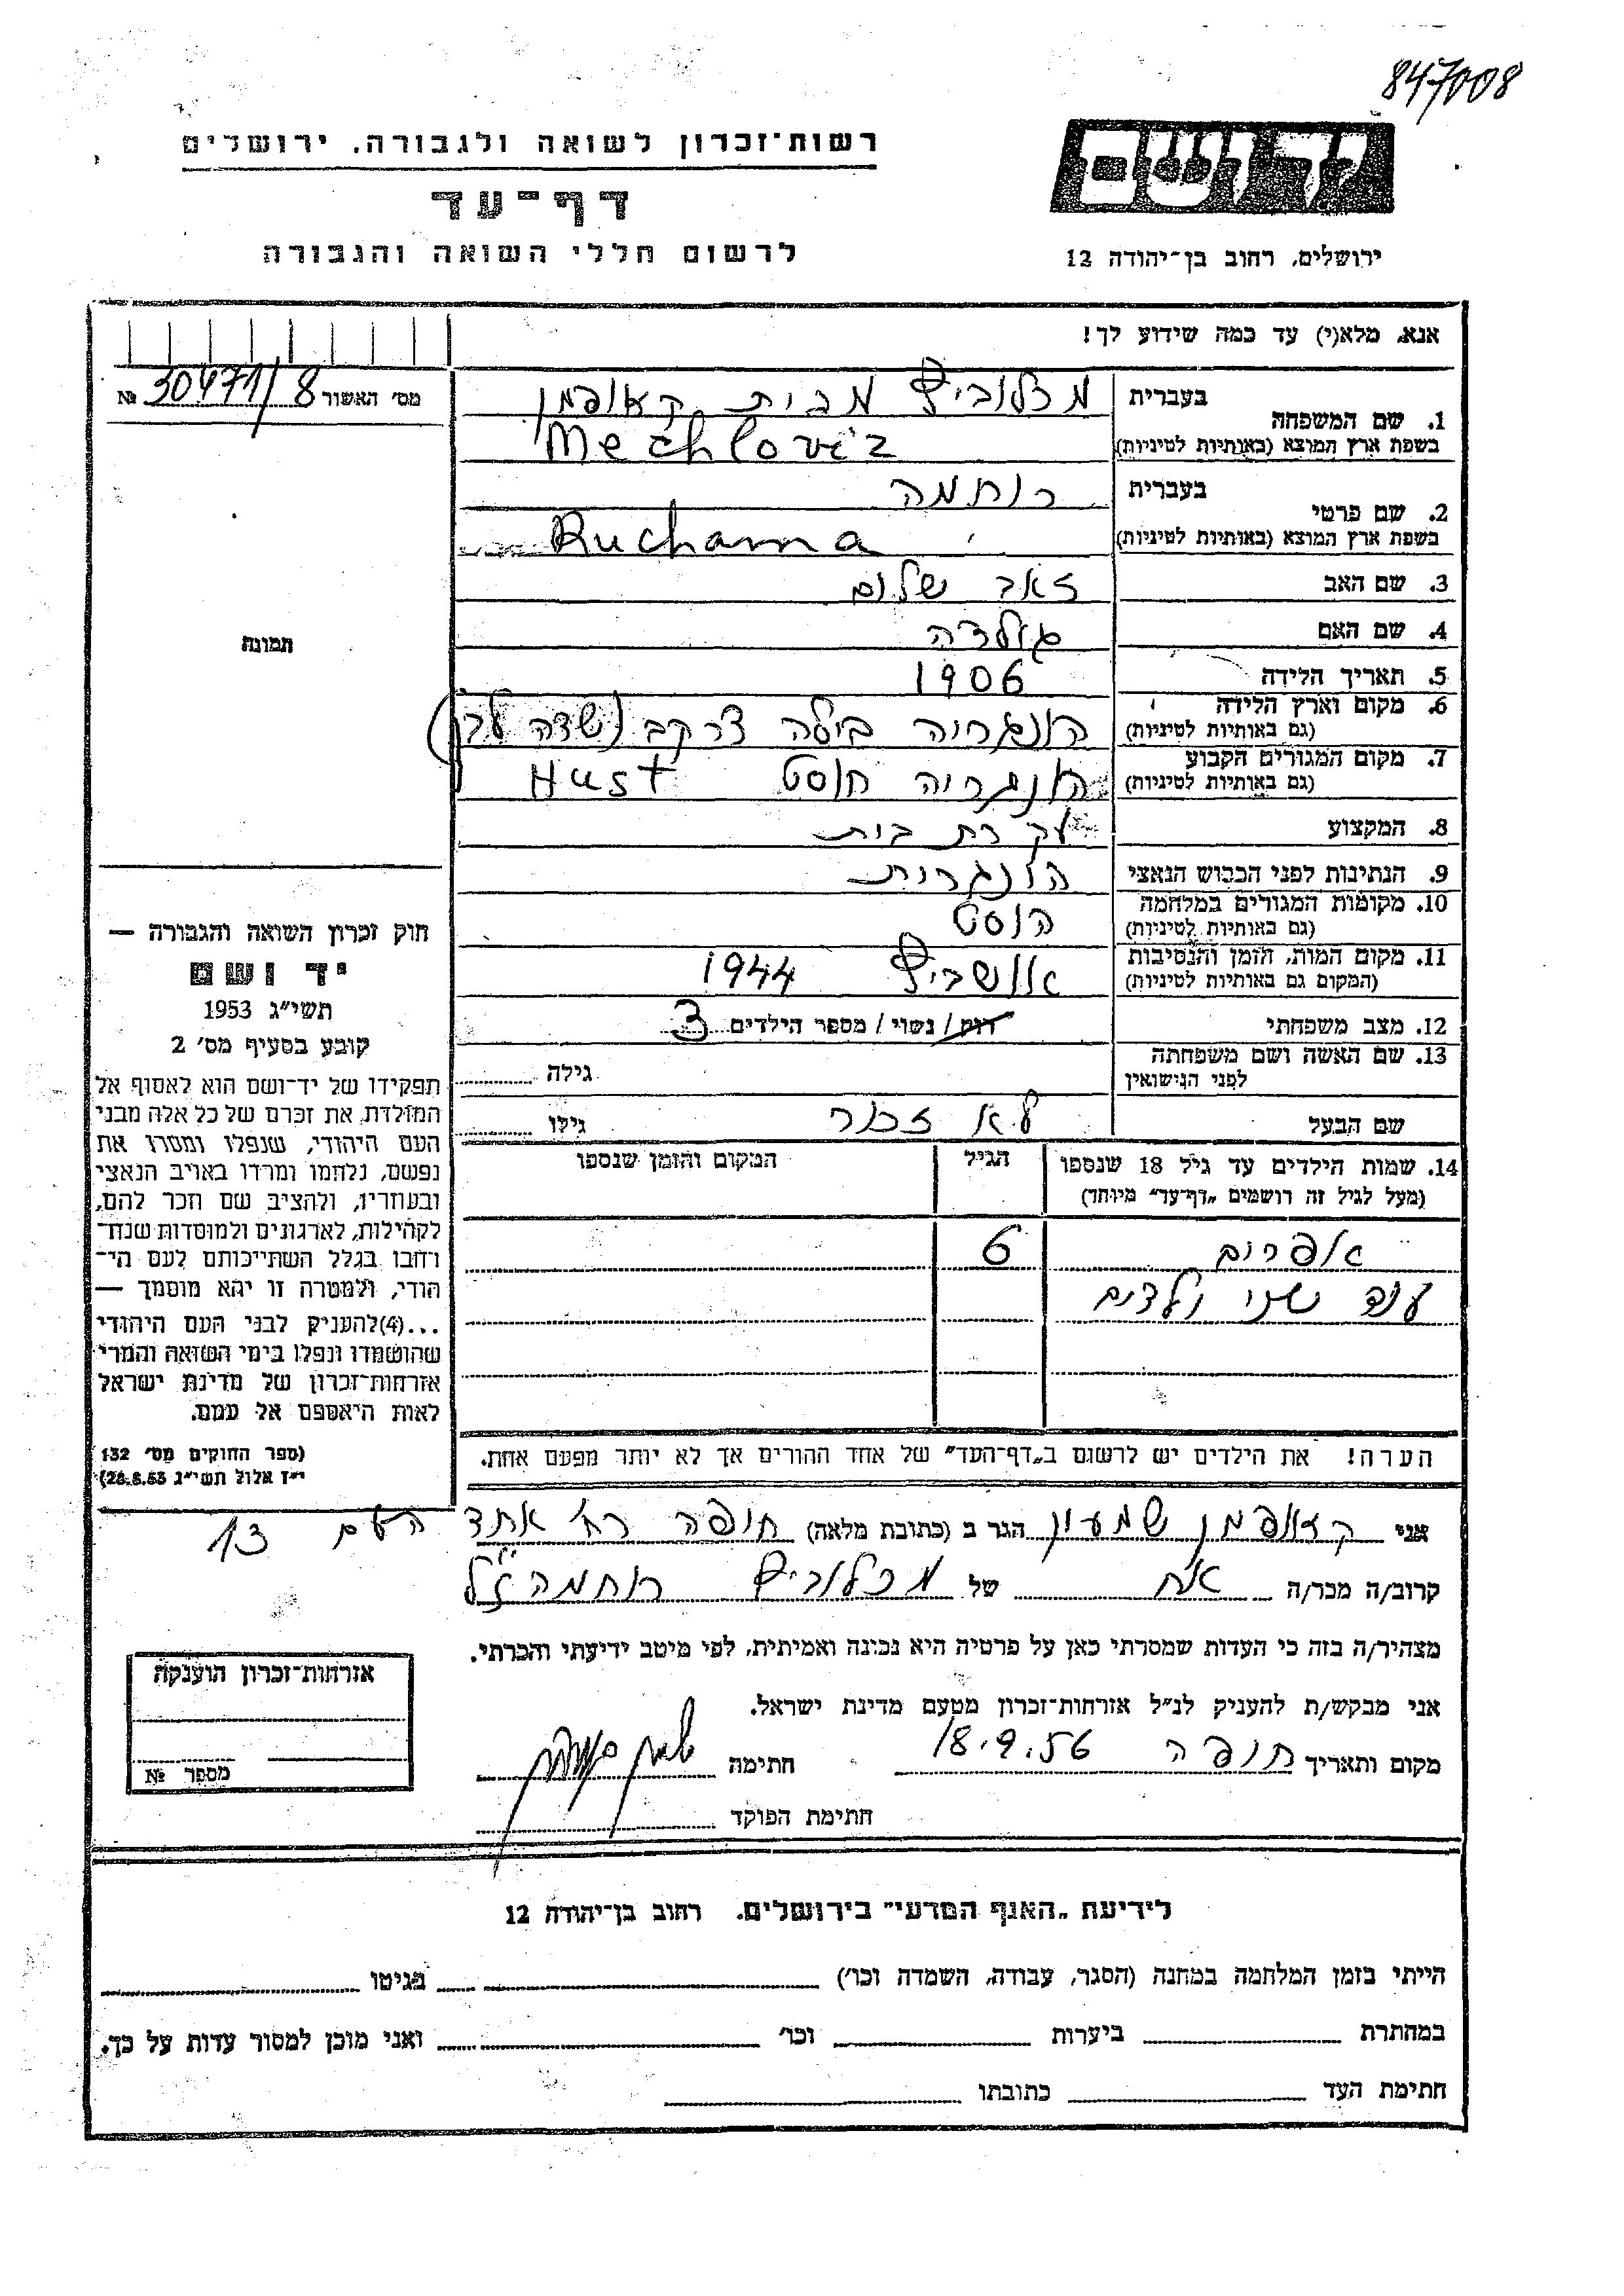 847008
רשות־זכרון לשואה ולגבורה. ירושלים
ידושם
דף־עד
לרשום חללי השואה והגבורה
ירושלים, רחוב בן־יהודה 12
אנא, מלא(י) עד כמה שידוע לך!
מס׳ האשור 30471/8 №
בעברית מכלוביץ מבית קאופמן
1. שם המשפחה
בשפת ארץ המוצא (באותיות לטיניות) Mechloviz
בעברית רוחמה
2. שם פרטי
בשפת ארץ המוצא (באותיות לטיניות) Ruchama
3. שם האב זאב שלום
4. שם האם גולדה
5. תאריך הלידה 1906
6. מקום וארץ הלידה הונגריה בילה צרקב (שדה לבן)
(גם באותיות לטיניות)
7. מקום המגורים הקבוע הונגריה חוסט Hust
(גם באותיות לטיניות)
8. המקצוע עקרת בית
9. הנתינות לפני הכבוש הנאצי הונגרית
10. מקומות המגורים במלחמה הוסט
(גם באותיות לטיניות)
11. מקום המות, הזמן והנסיבות אושביץ 1944
(המקום גם באותיות לטיניות)
12. מצב משפחתי רווק / נשוי / מספר הילדים 3
13. שם האשה ושם משפחתה גילה
לפני הנישואין
שם הבעל לא זכור גילו
14. שמות הילדים עד גיל 18 שנספו הגיל המקום והזמן שנספו
(מעל לגיל זה רושמים „דף־עד״ מיוחד)
אפרים 6
עוד שני ילדים
הערה! את הילדים יש לרשום ב„דף־העד״ של אחד ההורים אך לא יותר מפעם אחת.
תמונה
חוק זכרון השואה והגבורה —
יד ושם
תשי״ג 1953
קובע בסעיף מס׳ 2
תפקידו של יד־ושם הוא לאסוף אל
המולדת את זכרם של כל אלה מבני
העם היהודי, שנפלו ומסרו את
נפשם, נלחמו ומרדו באויב הנאצי
ובעוזריו, ולהציב שם וזכר להם,
לקהילות, לארגונים ולמוסדות שנח־
רבו בגלל השתייכותם לעם הי־
הודי, ולמטרה זו יהא מוסמך —
...(4) להעניק לבני העם היהודי
שהושמדו ונפלו בימי השואה והמרי
אזרחות־זכרון של מדינת ישראל
לאות היאספם אל עמם.
(ספר החוקים מס׳ 132
י״ז אלול תשי״ג 28.8.53)
אני קאופמן שמעון הגר ב (כתובת מלאה) חיפה רח׳ אחד העם 13
קרוב/ה מכר/ה אח של מכלוביץ רוחמה ז״ל
מצהיר/ה בזה כי העדות שמסרתי כאן על פרטיה היא נכונה ואמיתית, לפי מיטב ידיעתי והכרתי.
אני מבקש/ת להעניק לנ״ל אזרחות־זכרון מטעם מדינת ישראל.
מקום ותאריך חיפה 18.9.56 חתימה
חתימת הפוקד
אזרחות־זכרון הוענקה
מספר №
לידיעת „האגף המדעי״ בירושלים. רחוב בן־יהודה 12
הייתי בזמן המלחמה במחנה (הסגר, עבודה, השמדה וכו׳) בגיטו
במחתרת ביערות וכו׳ ואני מוכן למסור עדות על כך.
חתימת העד כתובתו